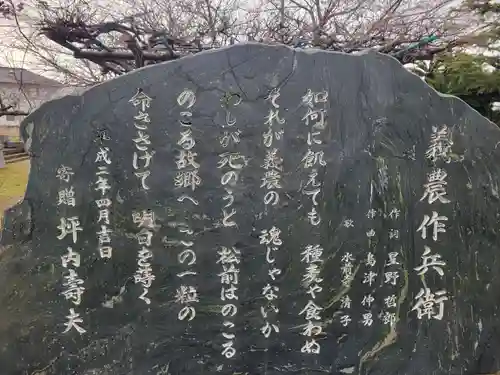 義農作兵衛
作詞 星野哲郎
作曲 島津伸男
歌 水前寺清子
如何に飢えても 種麦や食わぬ
それが義農の 魂じゃないか
わしが死のうと 松前はのこる
のこる故郷へ この一粒の
命ささげて 明日を祷く
平成二年四月吉日
寄贈 坪内壽夫